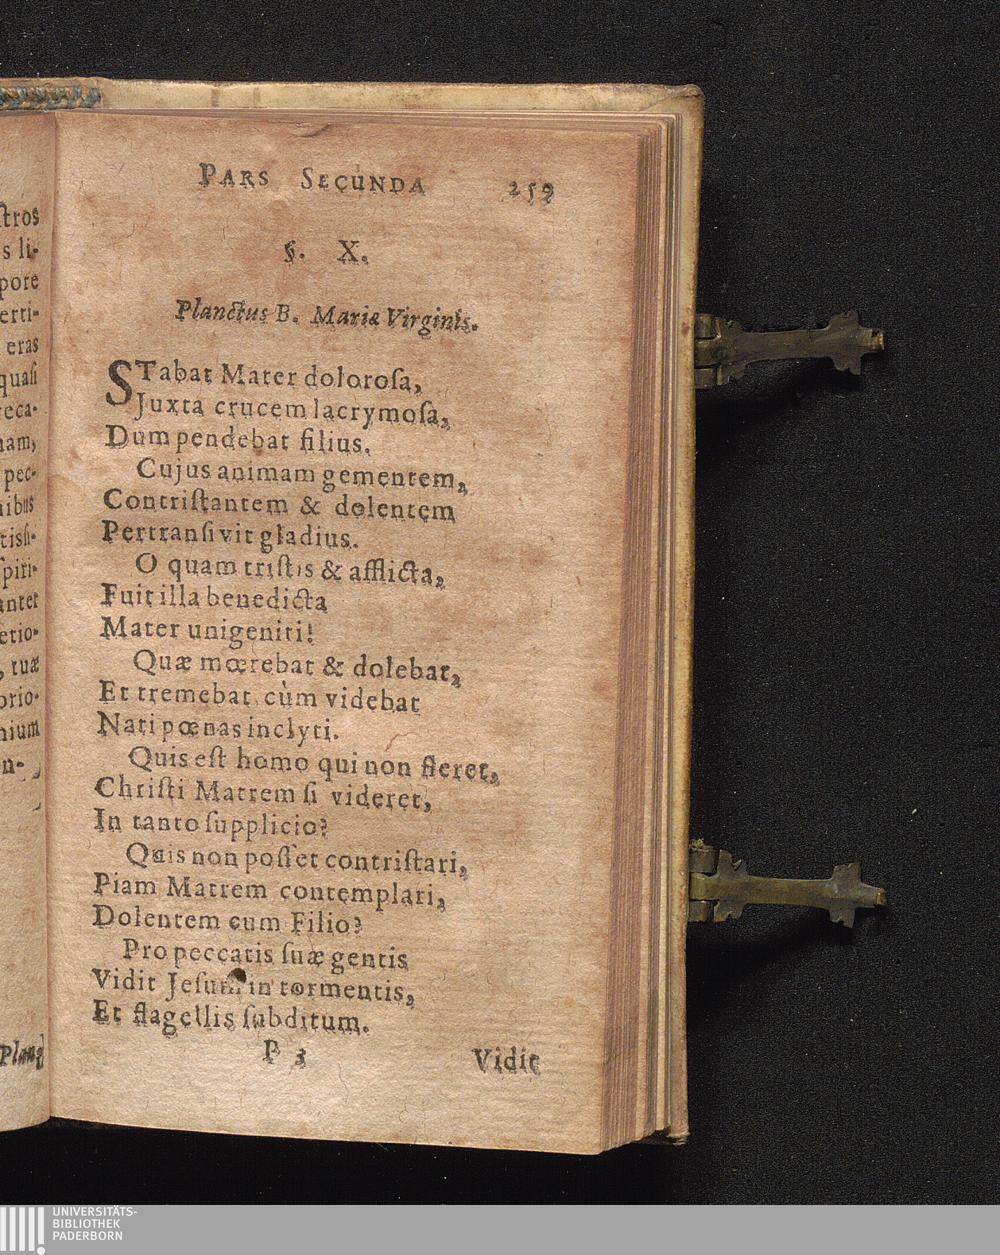 ſtros
s li-
pore
erti-
eras
quaſi
reca-
nam,
pec-
nibus
tiſſi-
ſpiri-
anter
etio-
, tuæ
orio-
nium
n-
Planct
PARS SECUNDA 259
§. X.
Planctus B. Mariæ Virginis.
STabat Mater doloroſa,
Juxta crucem lacrymoſa,
Dum pendebat filius.
Cujus animam gementem,
Contriſtantem & dolentem
Pertranſivit gladius.
O quam triſtis & afflicta,
Fuit illa benedicta
Mater unigeniti!
Quæ mœrebat & dolebat,
Et tremebat cùm videbat
Nati pœnas inclyti.
Quis eſt homo qui non fleret,
Chriſti Matrem ſi videret,
In tanto ſupplicio?
Quis non poſſet contriſtari,
Piam Matrem contemplari,
Dolentem cum Filio?
Pro peccatis ſuæ gentis
Vidit Jeſum in tormentis,
Et flagellis ſubditum.
P 3 Vidit
UNIVERSITÄTS-
BIBLIOTHEK
PADERBORN